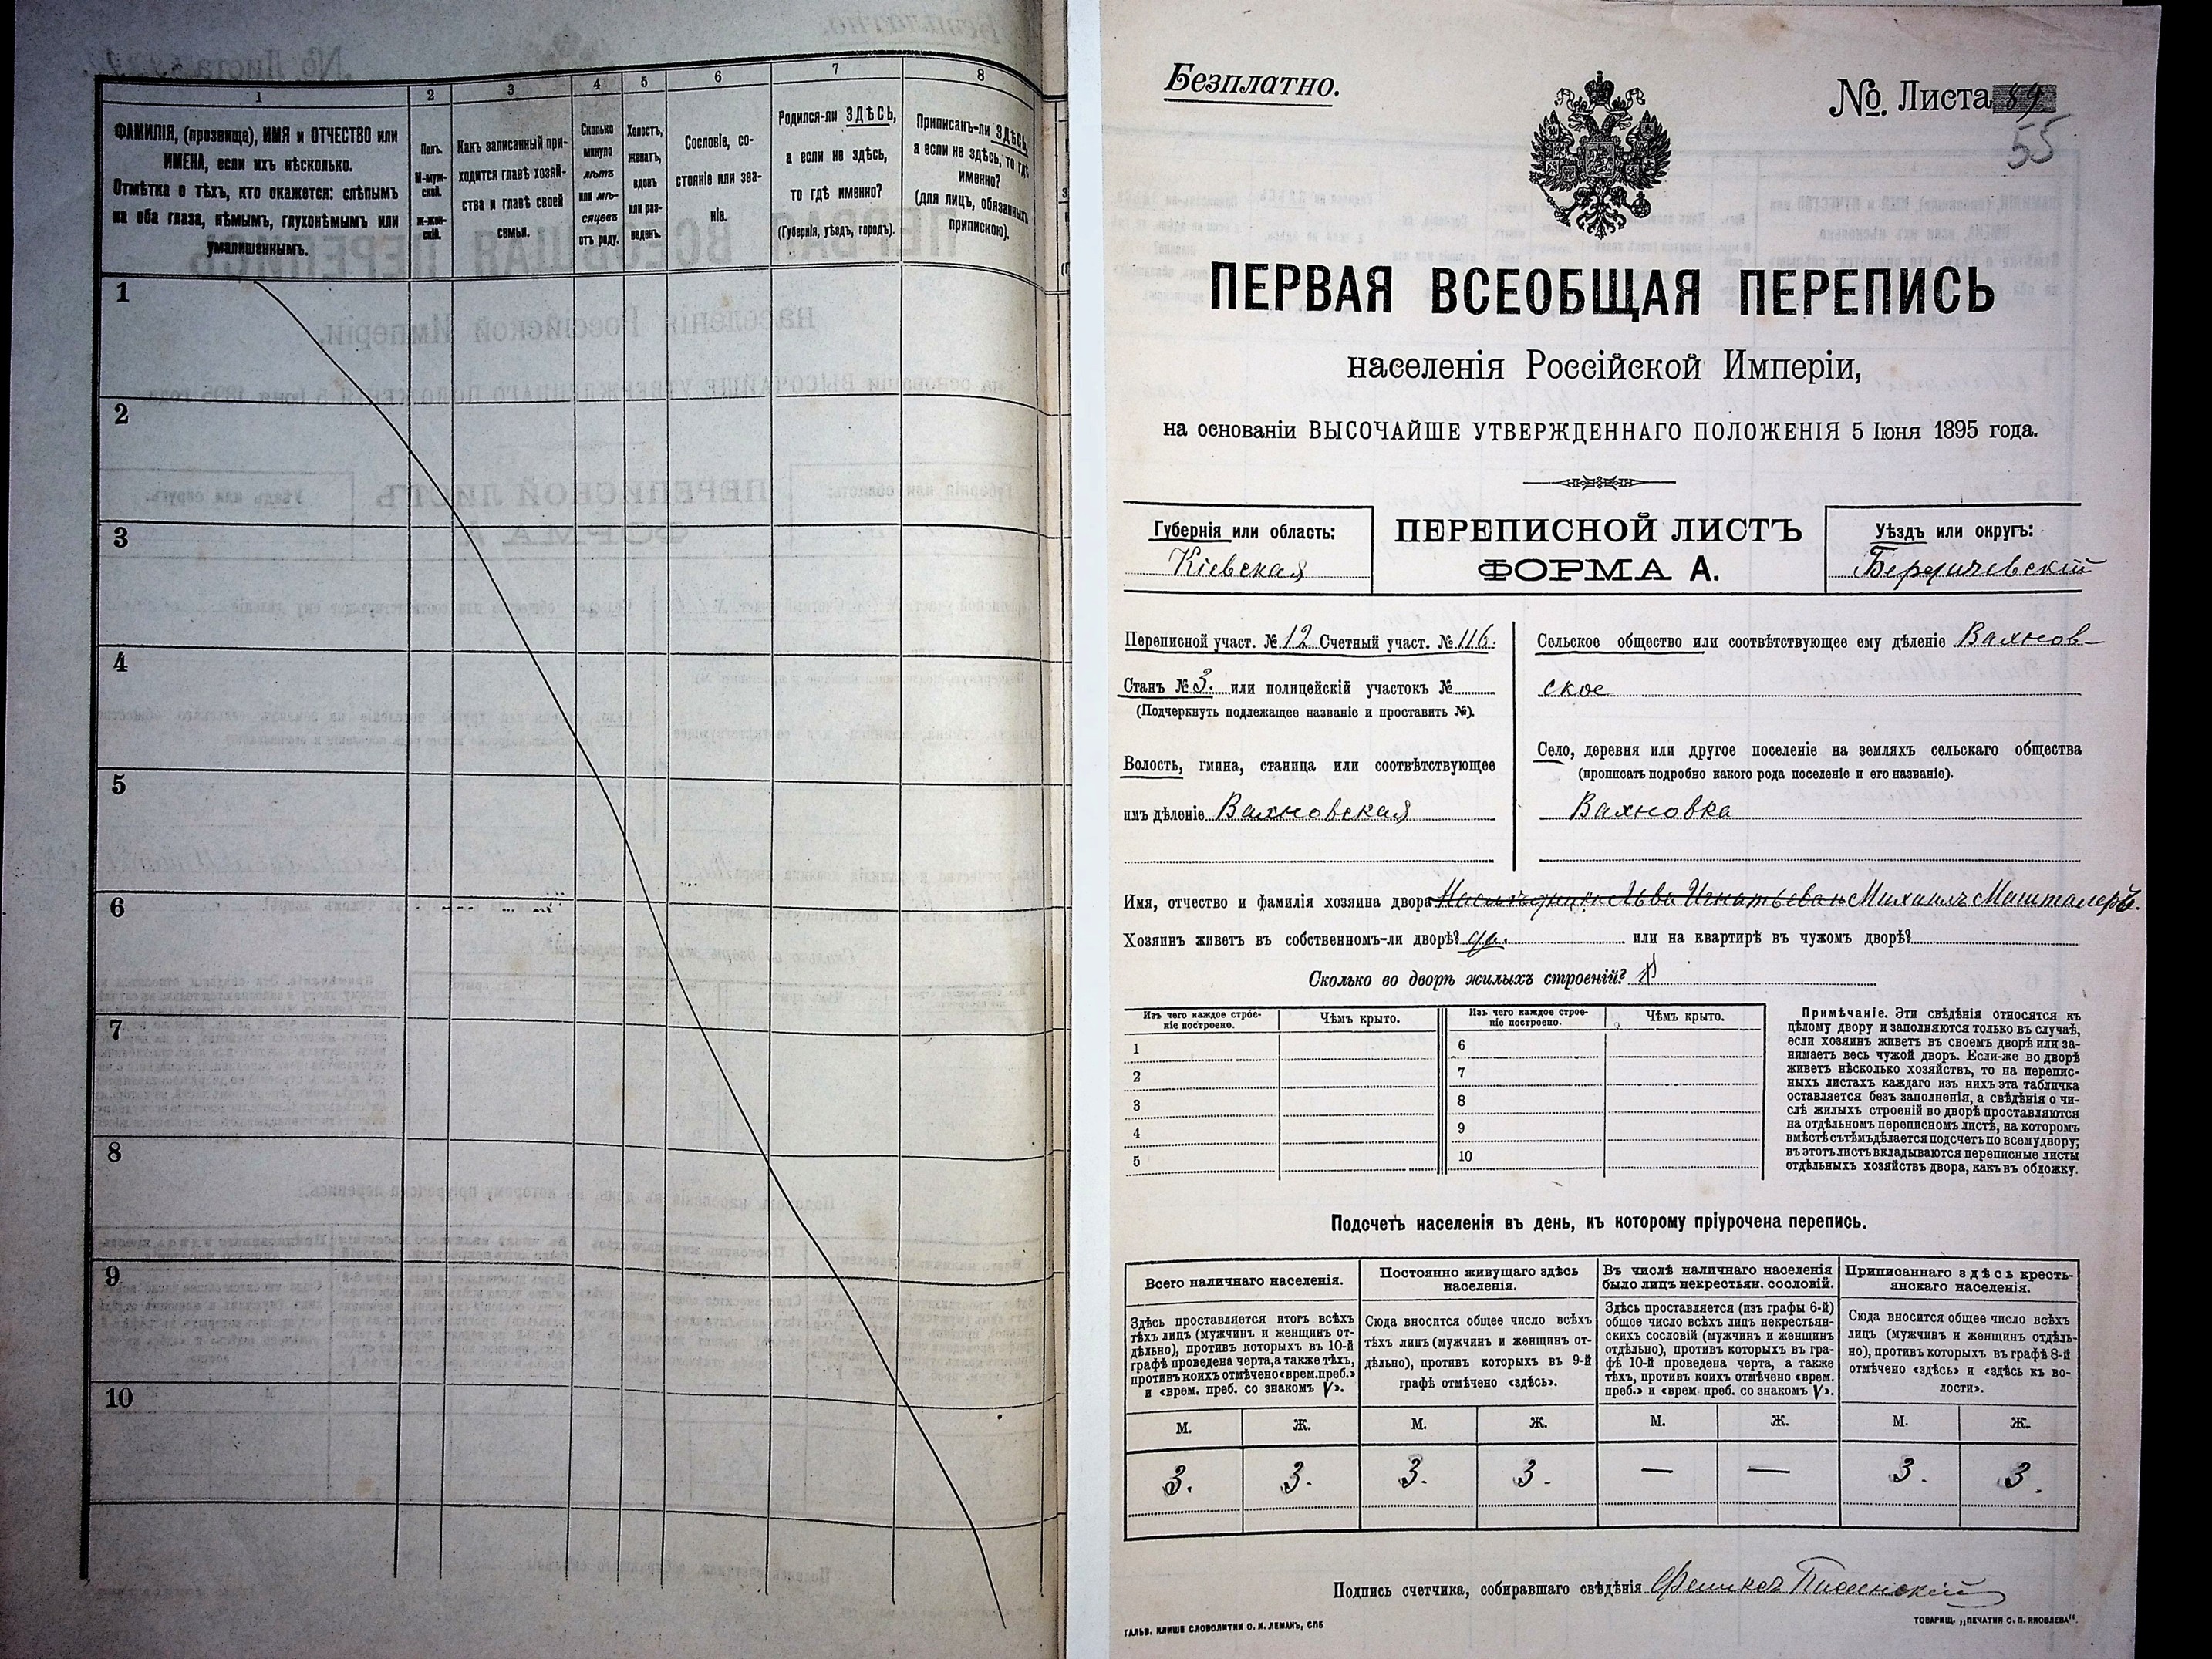 1 2 3 4 5 6 7 8
ФАМИЛІЯ, (прозвище), ИМЯ и ОТЧЕСТВО или
ИМЕНА, если ихъ нѣсколько.
Отмѣтка о тѣхъ, кто окажется: слѣпымъ
на оба глаза, нѣмымъ, глухонѣмымъ или
умалишеннымъ.
Полъ.
М-муж-
ской.
ж-жен-
скій.
Какъ записанный при-
ходится главѣ хозяй-
ства и главѣ своей
семьи.
Сколько
минуло
лѣтъ
или мѣ-
сяцевъ
отъ роду.
Холостъ,
женатъ,
вдовъ
или раз-
веденъ.
Сословіе, со-
стояніе или зва-
ніе.
Родился-ли ЗДѢСЬ,
а если не здѣсь,
то гдѣ именно?
(Губернія, уѣздъ, городъ).
Приписанъ-ли ЗДѢСЬ,
а если не здѣсь, то гдѣ
именно?
(для лицъ, обязанныхъ
припискою).
1
2
3
4
5
6
7
8
9
10
Безплатно.
№. Листа 89
55
ПЕРВАЯ ВСЕОБЩАЯ ПЕРЕПИСЬ
населенія Россійской Имперіи,
на основаніи ВЫСОЧАЙШЕ УТВЕРЖДЕННАГО ПОЛОЖЕНІЯ 5 Іюня 1895 года.
Губернія или область:
Кіевская
ПЕРЕПИСНОЙ ЛИСТЪ
ФОРМА А.
Уѣздъ или округъ:
Бердичевскій
Переписной участ. № 12 Счетный участ. № 116.
Станъ № 3. или полицейскій участокъ №
(Подчеркнуть подлежащее названіе и проставить №).
Волость, гмина, станица или соотвѣтствующее
имъ дѣленіе Вахновская
Сельское общество или соотвѣтствующее ему дѣленіе Вахнов-
ское
Село, деревня или другое поселеніе на земляхъ сельскаго общества
(прописать подробно какого рода поселеніе и его названіе).
Вахновка
Имя, отчество и фамилія хозяина двора Михаилъ Машталеръ.
Хозяинъ живетъ въ собственномъ-ли дворѣ? да. или на квартирѣ въ чужомъ дворѣ?
Сколько во дворѣ жилыхъ строеній?
Изъ чего каждое строе-
ніе построено.
Чѣмъ крыто.
Изъ чего каждое строе-
ніе построено.
Чѣмъ крыто.
1 6
2 7
3 8
4 9
5 10
Примѣчаніе. Эти свѣдѣнія относятся къ
цѣлому двору и заполняются только въ случаѣ,
если хозяинъ живетъ въ своемъ дворѣ или за-
нимаетъ весь чужой дворъ. Если-же во дворѣ
живетъ нѣсколько хозяйствъ, то на перепис-
ныхъ листахъ каждаго изъ нихъ эта табличка
оставляется безъ заполненія, а свѣдѣнія о чи-
слѣ жилыхъ строеній во дворѣ проставляются
на отдѣльномъ переписномъ листѣ, на которомъ
вмѣстѣ съ тѣмъ дѣлается подсчетъ по всему двору;
въ этотъ листъ вкладываются переписные листы
отдѣльныхъ хозяйствъ двора, какъ въ обложку.
Подсчетъ населенія въ день, къ которому пріурочена перепись.
Всего наличнаго населенія.
Здѣсь проставляется итогъ всѣхъ
тѣхъ лицъ (мужчинъ и женщинъ от-
дѣльно), противъ которыхъ въ 10-й
графѣ проведена черта, а также тѣхъ,
противъ коихъ отмѣчено «врем. преб.»
и «врем. преб. со знакомъ V».
Постоянно живущаго здѣсь
населенія.
Сюда вносится общее число всѣхъ
тѣхъ лицъ (мужчинъ и женщинъ от-
дѣльно), противъ которыхъ въ 9-й
графѣ отмѣчено «здѣсь».
Въ числѣ наличнаго населенія
было лицъ некрестьян. сословій.
Здѣсь проставляется (изъ графы 6-й)
общее число всѣхъ лицъ некрестьян-
скихъ сословій (мужчинъ и женщинъ
отдѣльно), противъ которыхъ въ гра-
фѣ 10-й проведена черта, а также
тѣхъ, противъ коихъ отмѣчено «врем.
преб.» и «врем. преб. со знакомъ V».
Приписаннаго здѣсь кресть-
янскаго населенія.
Сюда вносится общее число всѣхъ
лицъ (мужчинъ и женщинъ отдѣль-
но), противъ которыхъ въ графѣ 8-й
отмѣчено «здѣсь» и «здѣсь къ во-
лости».
М. Ж. М. Ж. М. Ж. М. Ж.
3. 3. 3. 3. — — 3. 3.
Подпись счетчика, собиравшаго свѣдѣнія
ГАЛЬВ. КЛИШЕ СЛОВОЛИТНИ О. И. ЛЕМАНЪ, СПБ
ТОВАРИЩ. „ПЕЧАТНЯ С. П. ЯКОВЛЕВА".